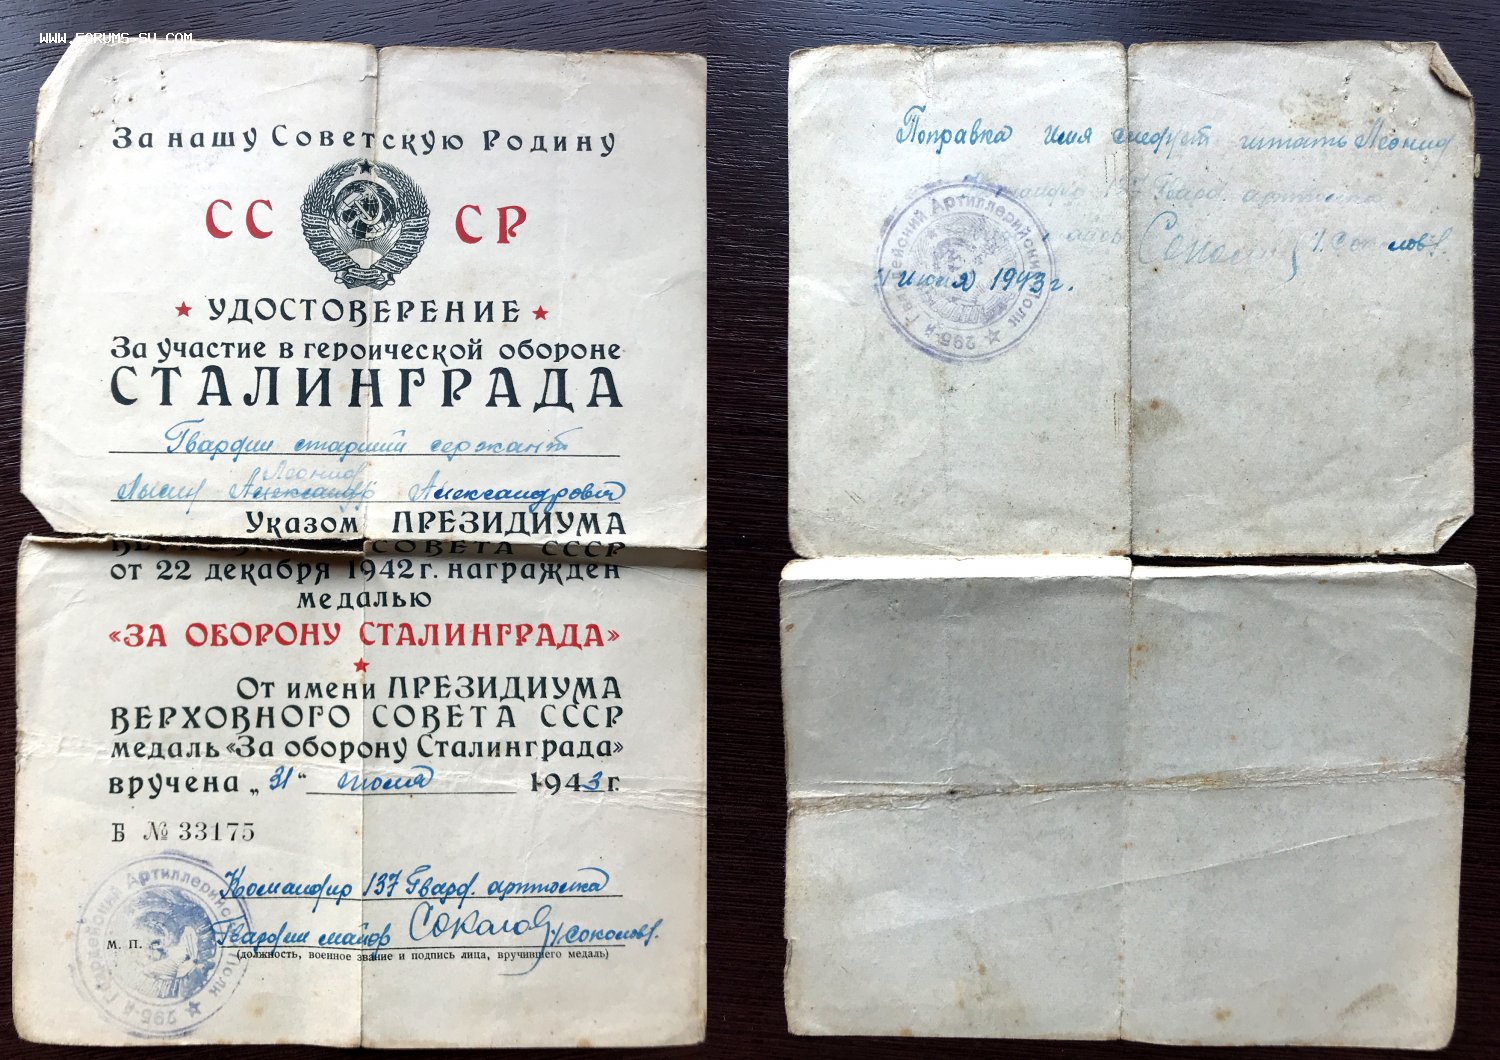 WWW.FORUMS-SU.COM
За нашу Советскую Родину
СССР
★ УДОСТОВЕРЕНИЕ ★
За участие в героической обороне
СТАЛИНГРАДА
Гвардии старший сержант
Леонид
Лысик Александр Александрович
Указом ПРЕЗИДИУМА
ВЕРХОВНОГО СОВЕТА СССР
от 22 декабря 1942 г. награжден
медалью
«ЗА ОБОРОНУ СТАЛИНГРАДА»
★
От имени ПРЕЗИДИУМА
ВЕРХОВНОГО СОВЕТА СССР
медаль «За оборону Сталинграда»
вручена „31“ июля 1943 г.
Б № 33175
Командир 137 Гвард. артполка
Гвардии майор Соколов /Соколов/.
М. П.
(должность, военное звание и подпись лица, вручившего медаль)
295-й Гвардейский Артиллерийский Полк ★
Поправка имя следует читать Леонид
Командир 137 Гвард. артполка
майор /Соколов/.
июля 1943 г.
295-й Гвардейский Артиллерийский Полк ★